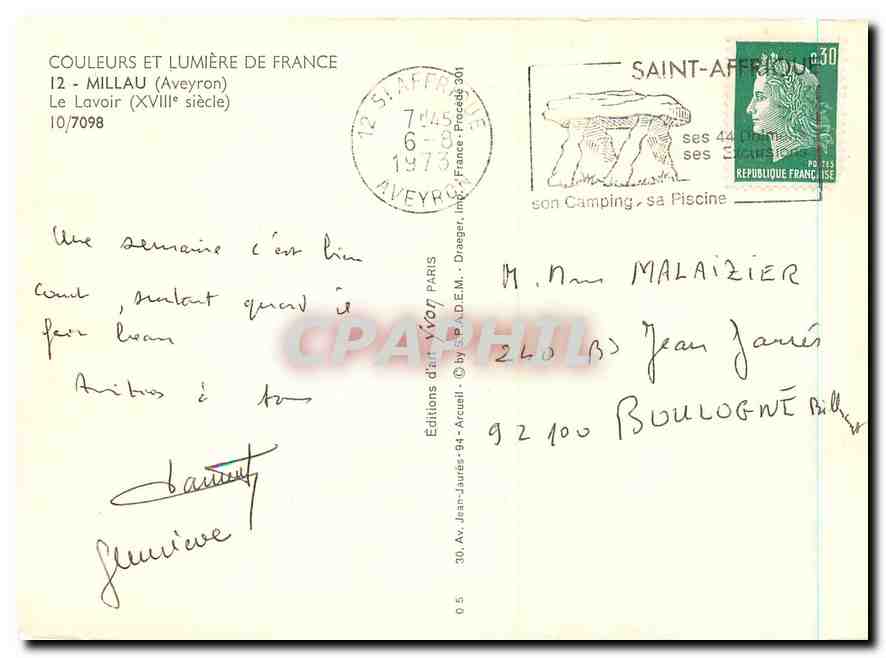 COULEURS ET LUMIÈRE DE FRANCE
12 - MILLAU (Aveyron)
Le Lavoir (XVIIIe siècle)
10/7098
12 ST AFFRIQUE
7H45
6-8
1973
AVEYRON
SAINT-AFFRIQUE
ses 44 Dolmens
ses Excursions
son Camping, sa Piscine
0.30
POSTES
REPUBLIQUE FRANÇAISE
Une semaine c'est bien
court, surtout quand il
fait beau
Amitiés à tous
Geneviève
Editions d'art Yvon PARIS
30, Av. Jean-Jaurès - 94 - Arcueil - © by S.P.A.D.E.M. - Draeger, Imp. France - Procédé 301
0 5
M. Mme MALAIZIER
240 Bd Jean Jaurés
92100 BOULOGNE Bill
CPAPHIL